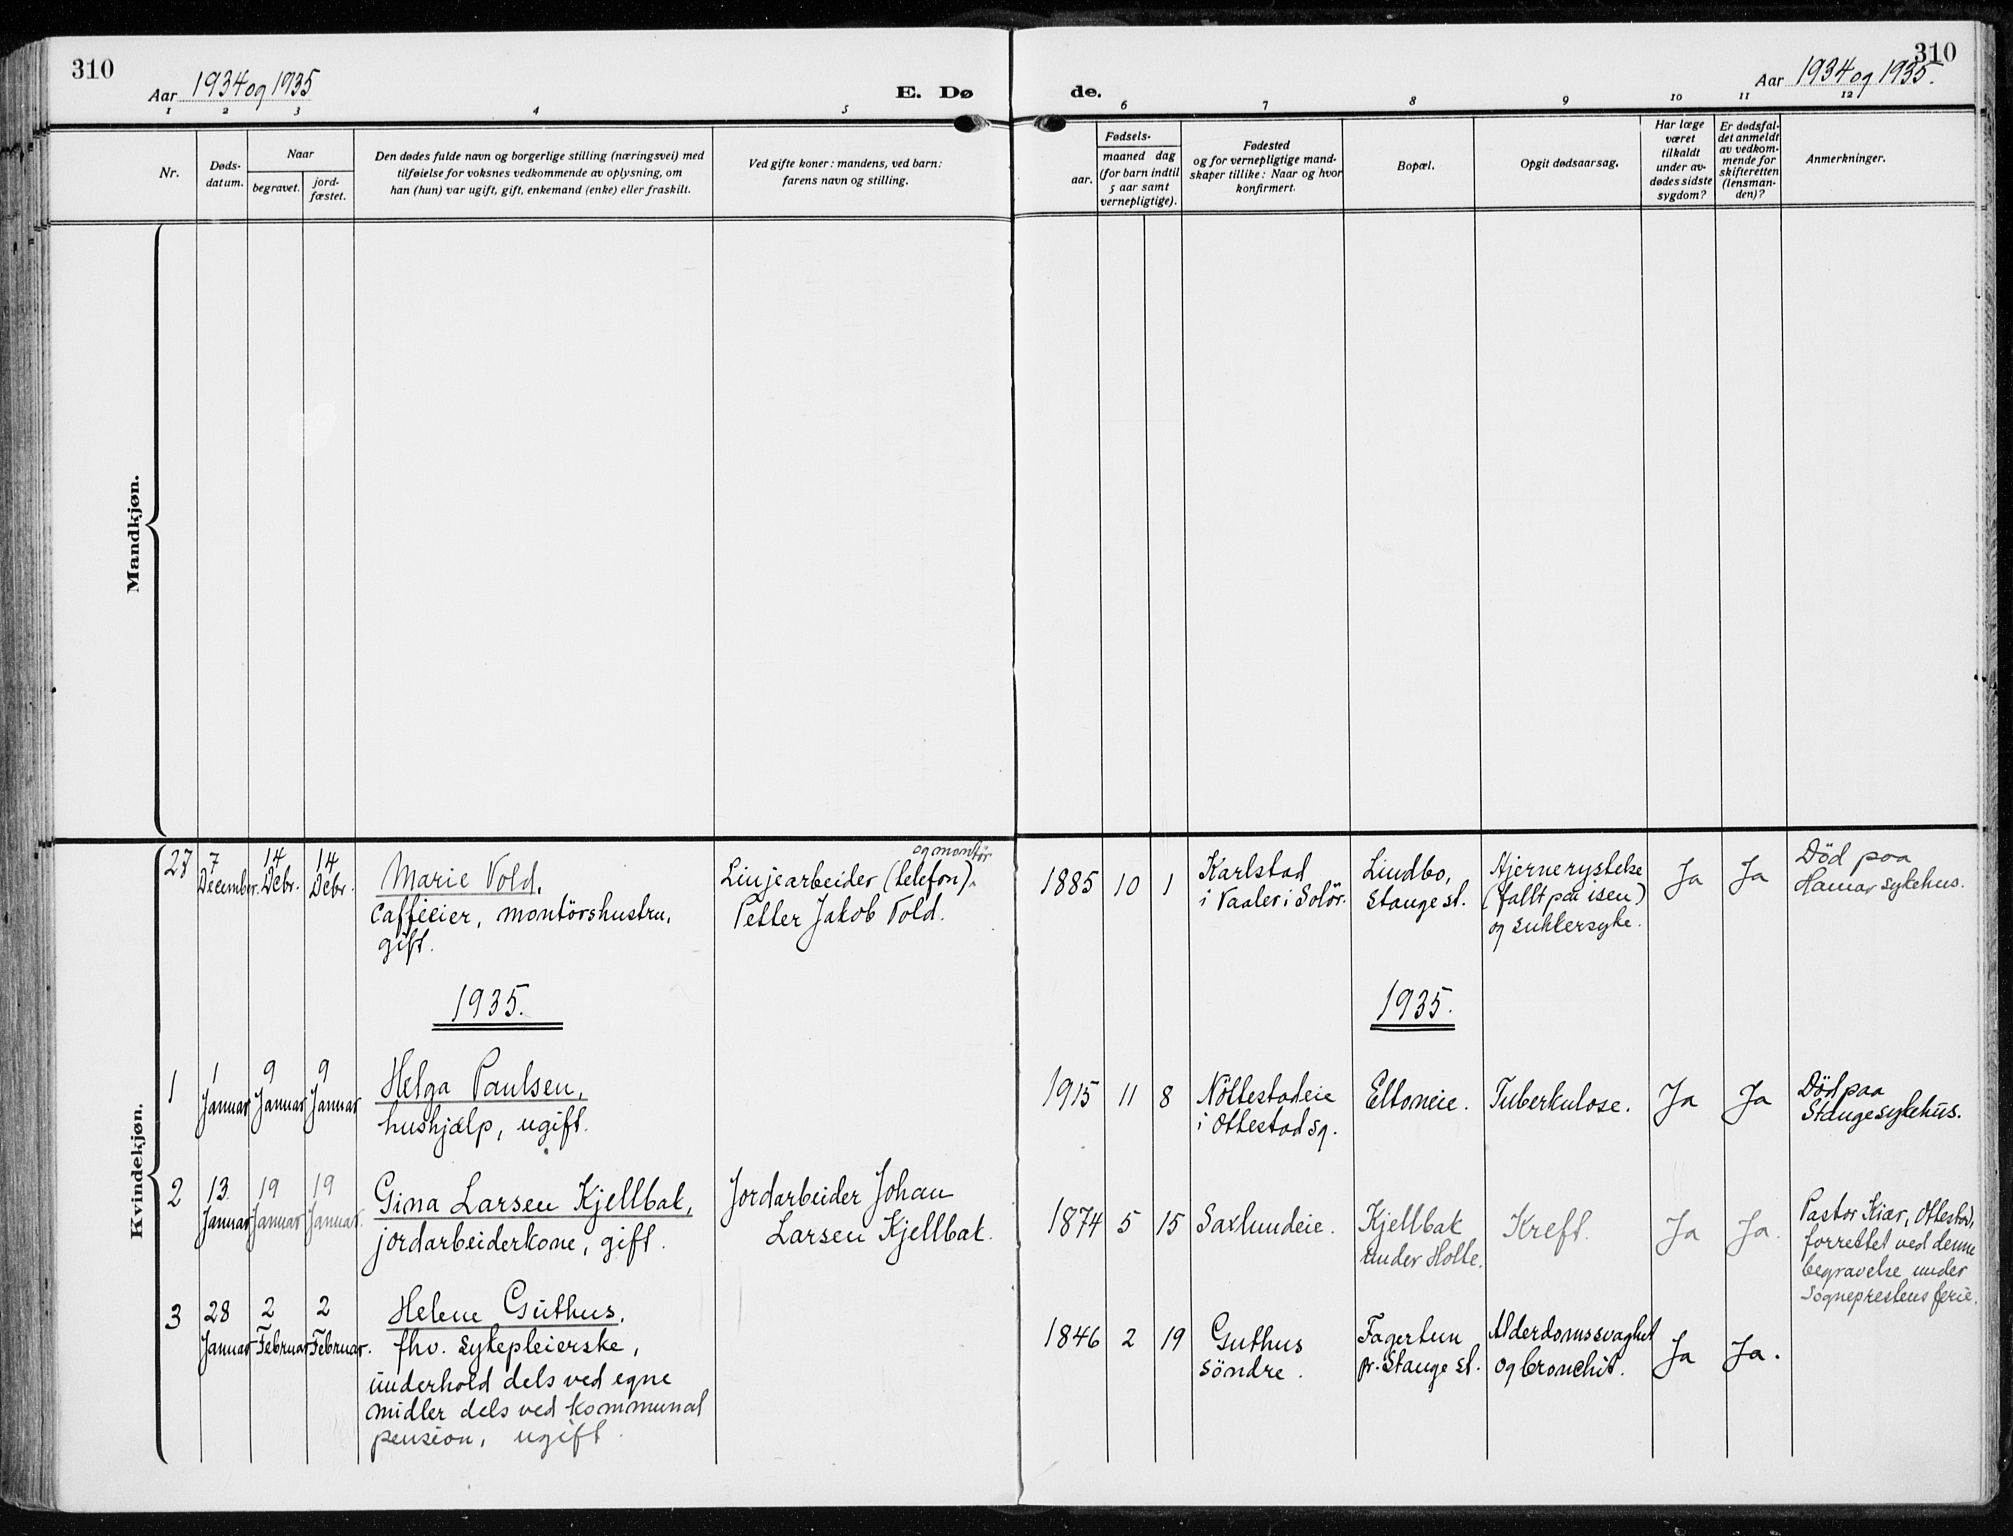 310
Aar 1934 og 1935
E. Dø
1 2 3 4 5
Nr.
Døds-
datum.
Naar
begravet.
jord-
fæstet.
Den dødes fulde navn og borgerlige stilling (næringsvei) med
tilføielse for voksnes vedkommende av oplysning, om
han (hun) var ugift, gift, enkemand (enke) eller fraskilt.
Ved gifte koner: mandens, ved barn:
farens navn og stilling.
Mandkjøn.
Kvindekjøn.
27
7
December.
14
Debr.
14
Debr.
Marie Vold,
Cafféeier, montörshustru,
gift.
og montör
Linjearbeider (telefon).
Petter Jakob Vold.
1935.
1
1
Januar
9
Januar
9
Januar
Helga Paulsen,
hushjælp, ugift.
2
13
Januar
19
Januar
19
Januar.
Gina Larsen Kjellbak,
jordarbeiderkone, gift.
Jordarbeider Johan
Larsen Kjellbak.
3
28
Januar
2
Februar
2
Februar.
Helene Guthus,
fhv. sykepleierske,
underhold dels ved egne
midler dels ved kommunal
pension, ugift.
310
Aar 1934 og 1935.
de.
6 7 8 9 10 11 12
Fødsels-
aar.
maaned dag
(for barn indtil
5 aar samt
vernepligtige).
Fødested
og for vernepligtige mand-
skaper tillike: Naar og hvor
konfirmert.
Bopæl.
Opgit dødsaarsag.
Har læge
været
tilkaldt
under av-
dødes sidste
sygdom?
Er dødsfal-
det anmeldt
av vedkom-
mende for
skifteretten
(lensman-
den)?
Anmerkninger.
1885 10 1
Karlstad
i Vaaler i Solör.
Lindbo,
Stange st.
Hjernerystelse
(fallt på isen)
og sukkersyke.
Ja
Ja
Död paa
Hamar sykehus.
1935.
1915 11 8
Nöttestadeie
i Ottestad sg.
Eltoneie.
Tuberkulose.
Ja
Ja
Död paa
Stange sykehus.
1874 5 15
Saxlundeie.
Kjellbak
under Holte.
Kreft.
Ja
Ja.
Pastor Kiær, Ottestad,
forrettet ved denne
begravelse under
Sogneprestens ferie.
1846 2 19
Guthus
söndre.
Fagertun
pr. Stange st.
Alderdomssvaghet
og bronchit.
Ja
Ja.